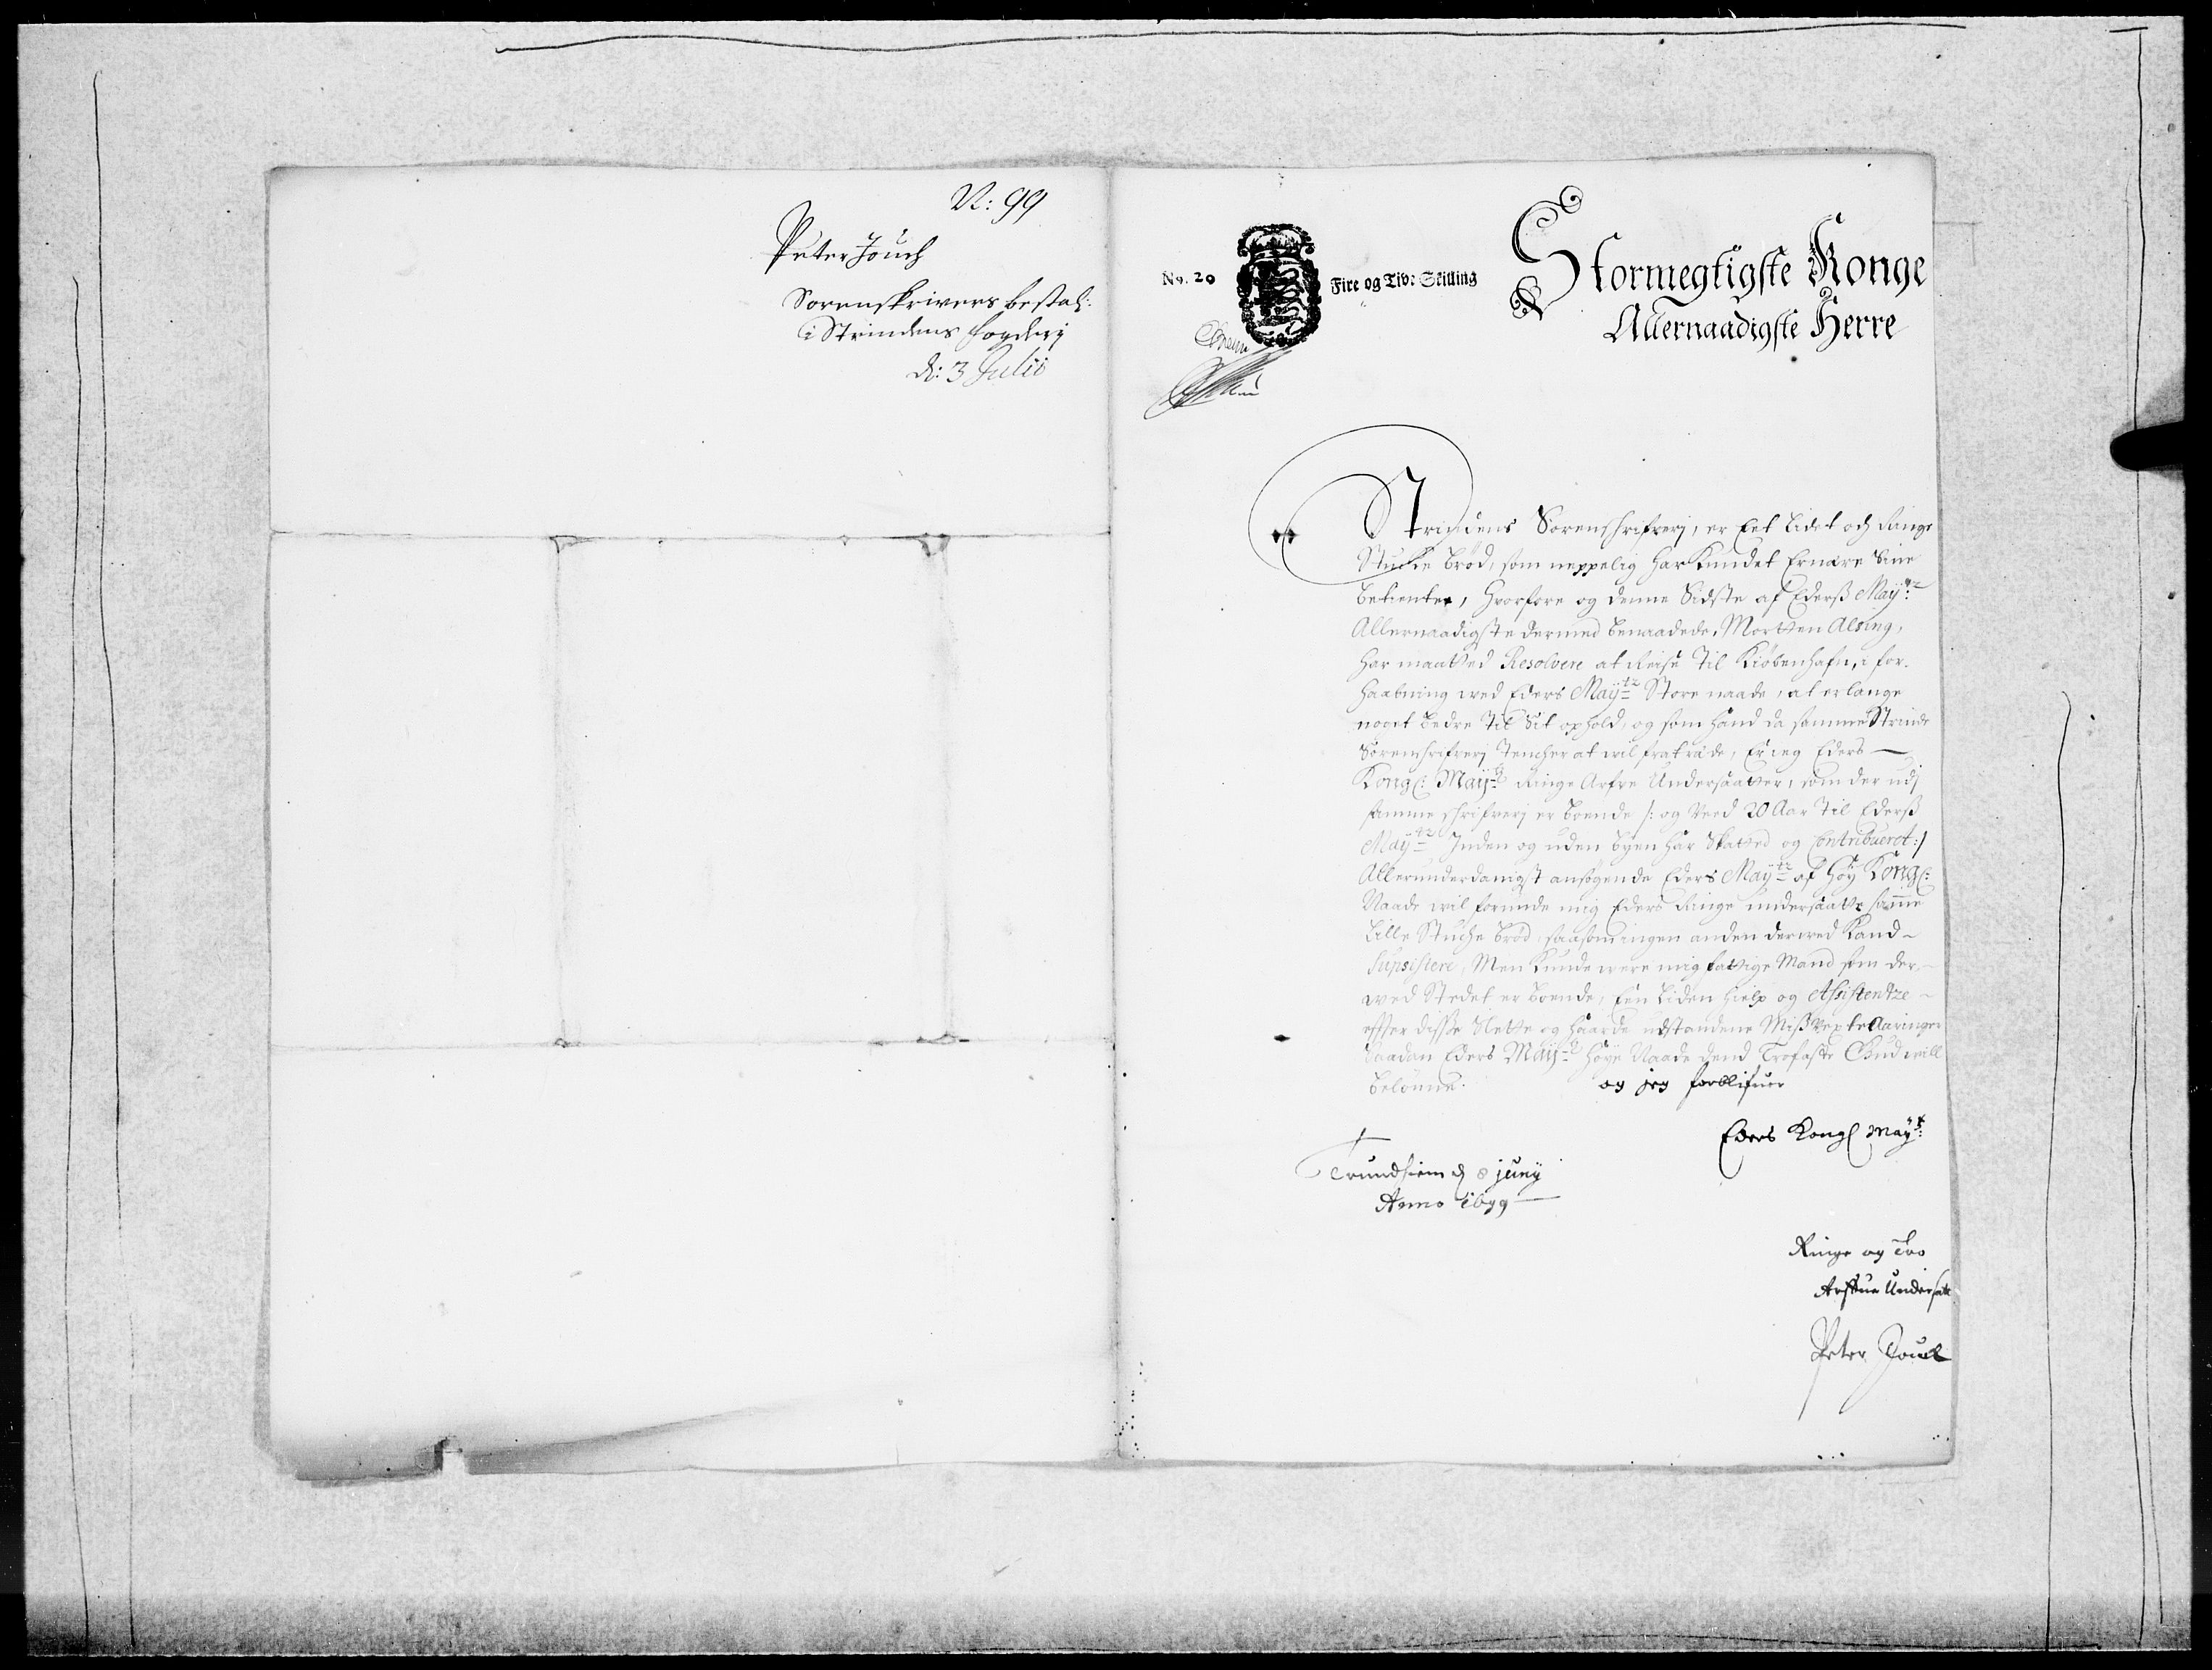 N: 99
Peter Jouch
Sorenskrivers bestal:
i Strindens fogderj
d: 3 Julii
No. 20
Fire og Tiv: Skilling
Stormegtigste Konge
Allernaadigste Herre
Strindens Sorenschrifverj, er Eet Lidet och Ringe
Stucke brød, som neppelig har Kundet Ernære Sine
betienter, hvorfore og denne Sidste af Ederß Mayᵗᶻ:
Allernaadigste dermed benaadede, Morten Alsing,
har maatted Resolvere at Reise til Kiöbenhafn, i for-
haabning ved Eders Mayᵗᶻ Store naade, at erlange
noget bedre til Sit ophold, og som hand da samme Strinde
Sorenschrifverj tencher at vil fratræde, Er ieg Eders
Kongl: Mayᵗᶻ Ringe Arfve Undersaatter, som der udj
samme schrifverj er boende /: og Veed 20 Aar til Ederß
Mayᵗᶻ Inden og uden byen har Skatted og Contribueret :/
Allerunderdanigst ansøgende Eders Mayᵗᶻ af høy Kongl:
Naade vil forunde mig Eders Ringe undersaatte samme
Lille Stuche brød, saasom ingen anden derved Kand
Supsistere, Men Kunde were mig fattige Mand som der
wed Stedet er boende, Een liden hielp og Assistentze
effter disse Slette og haarde udstandene Mißvexte Aaringer
Saadan Eders Mayᵗᶻ høye Naade dend Trofaste Gud will
belønne. og jeg forblifuer
Eders Kongl Mayᵗ:
Trundhiem d 8 juny
Anno 1699
Ringe og Tro
Arffue Undersaatt
Peter Jouch